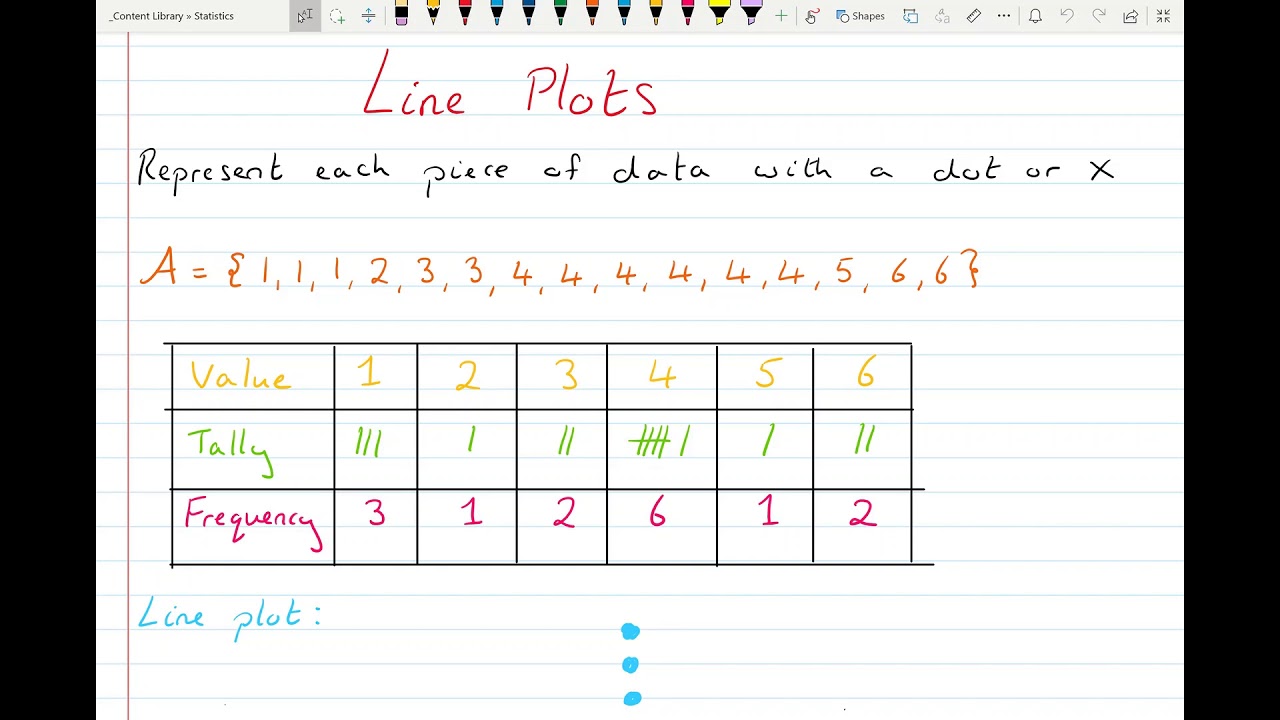 _Content Library » Statistics
Shapes
Line Plots
Represent each piece of data with a dot or X
A = {1, 1, 1, 2, 3, 3, 4, 4, 4, 4, 4, 4, 5, 6, 6}
Value 1 2 3 4 5 6
Tally
Frequency 3 1 2 6 1 2
Line plot: